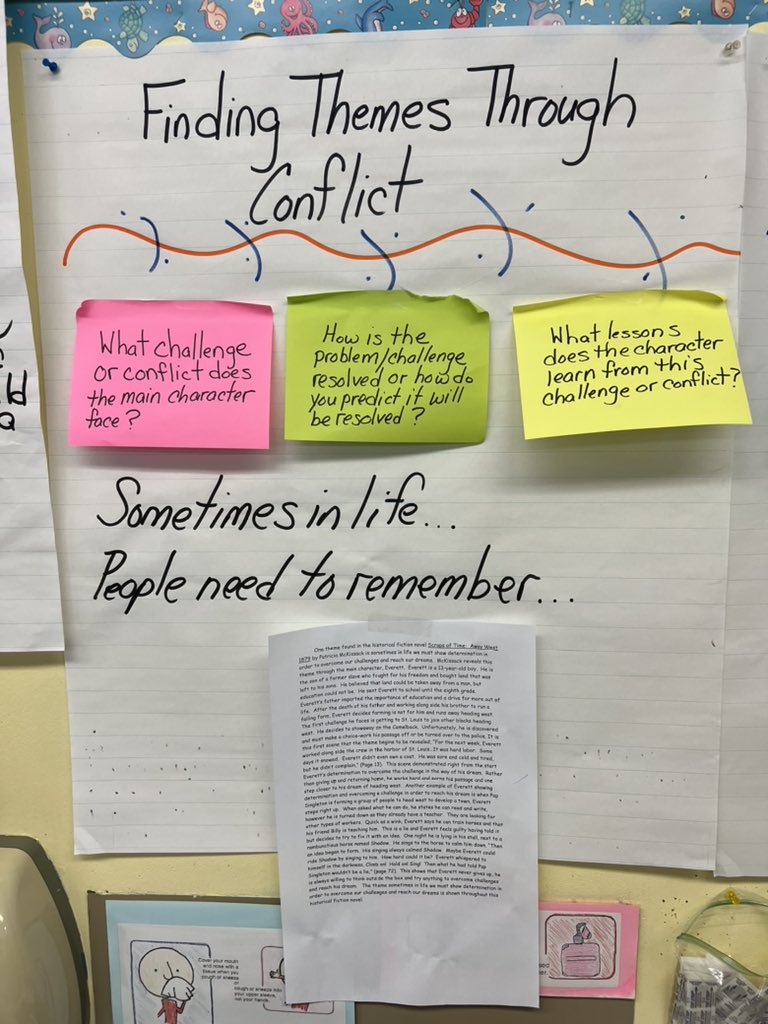 Finding Themes Through
Conflict
What challenge
or conflict does
the main character
face?
How is the
problem/challenge
resolved or how do
you predict it will
be resolved?
What lessons
does the character
learn from this
challenge or conflict?
Sometimes in life...
People need to remember...
One theme found in the historical fiction novel Scraps of Time: Away West
1879 by Patricia McKissack is sometimes in life we must show determination in
order to overcome our challenges and reach our dreams. McKissack reveals this
theme through the main character, Everett. Everett is a 13-year-old boy. He is
the son of a former slave who fought for his freedom and bought land that was
left to his sons. He believed that land could be taken away from a man, but
education could not be. He sent Everett to school until the eighth grade.
Everett's father imported the importance of education and a drive for more out of
life. After the death of his father and working along side his brother to run a
failing farm, Everett decides farming is not for him and runs away heading west.
The first challenge he faces is getting to St. Louis to join other blacks heading
west. He decides to stowaway on the Camelback. Unfortunately, he is discovered
and must make a choice-work his passage off or be turned over to the police. It is
this first scene that the theme begins to be revealed; "For the next week, Everett
worked along side the crew in the harbor of St. Louis. It was hard labor. Some
days it snowed. Everett didn't even own a coat. He was sore and cold and tired,
but he didn't complain," (Page 13). This scene demonstrated right from the start
Everett's determination to overcome the challenge in the way of his dream. Rather
than giving up and returning home, he works hard and earns his passage and one
step closer to his dream of heading west. Another example of Everett showing
determination and overcoming a challenge in order to reach his dream is when Pap
Singleton is forming a group of people to head west to develop a town, Everett
steps right up. When asked what he can do, he states he can read and write,
however he is turned down as they already have a teacher. They are looking for
other types of workers. Quick as a wink, Everett says he can train horses and that
his friend Billy is teaching him. This is a lie and Everett feels guilty having told it
but decides to try to fix it with an idea. One night he is lying in his stall, next to a
rambunctious horse named Shadow. He sings to the horse to calm him down. "Then
an idea began to form. His singing always calmed Shadow. Maybe Everett could
ride Shadow by singing to him. How hard could it be? Everett whispered to
himself in the darkness, Climb on! Hold on! Sing! Then what he had told Pap
Singleton wouldn't be a lie," (page 72). This shows that Everett never gives up, he
is always willing to think outside the box and try anything to overcome challenges
and reach his dream. The theme sometimes in life we must show determination in
order to overcome our challenges and reach our dreams is shown throughout this
historical fiction novel.
Cover your mouth
and nose with a
tissue when you
cough or sneeze
or
cough or sneeze into
your upper sleeve,
not your hands.